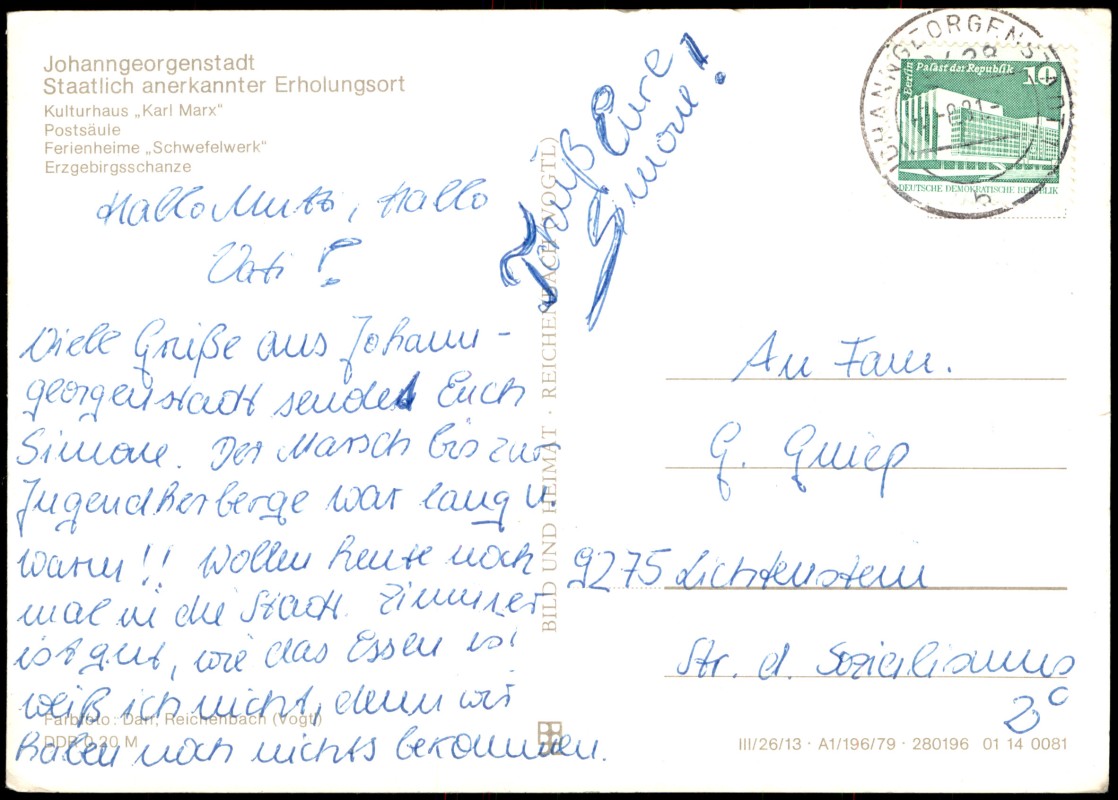 Johanngeorgenstadt
Staatlich anerkannter Erholungsort
Kulturhaus „Karl Marx"
Postsäule
Ferienheime „Schwefelwerk"
Erzgebirgsschanze
Hallo Mutti, Hallo
Vati!
Viele Grüße aus Johann-
georgenstadt sendet Euch
Simone. Der Marsch bis zur
Jugendherberge war lang u.
warm!! Wollen heute noch
mal in die Stadt. Zimmer
ist gut, wie das Essen ist
weiß ich nicht, denn wir
haben noch nichts bekommen.
Tschüß Eure
Simone!
Farbfoto: Darr, Reichenbach (Vogtl)
DDR 0,20 M
BILD UND HEIMAT · REICHENBACH (VOGTL)
JOHANNGEORGENSTADT
Berlin Palast der Republik
10
DEUTSCHE DEMOKRATISCHE REPUBLIK
An Fam.
G.
9275 Lichtenstein
Str. d. Sozialismus
2c
III/26/13 · A1/196/79 · 280196 01 14 0081